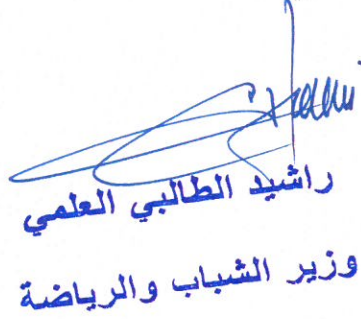 راشيد الطالبي العلمي
وزير الشباب والرياضة